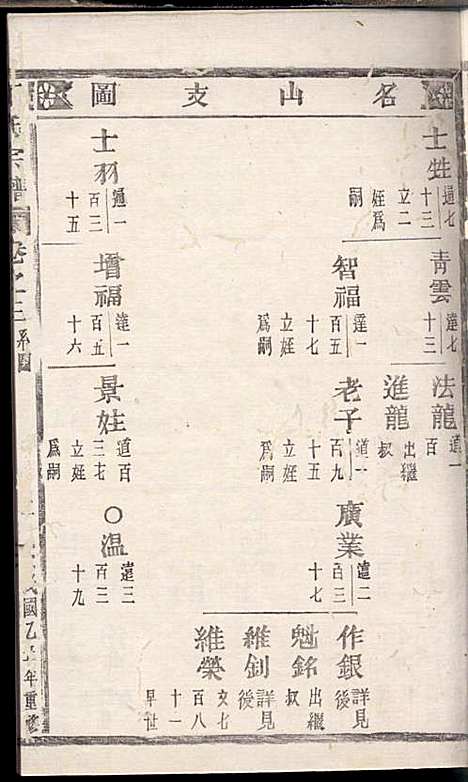 名山支圖
士甡
通七
十三
立二
姪爲
嗣
士羽
通一
百三
十五
青雲
達七
十三
智福
達一
百五
十七
立姪
爲嗣
增福
達一
百五
十六
法龍
道一
百
進龍
出繼
叔
老子
道一
百九
十五
立姪
爲嗣
景姓
道百
三七
立姪
爲嗣
廣業
遠二
百三
十七
○温
遠三
百三
十九
作銀
詳見
後
魁銘
出繼
叔
維釗
詳見
後
維榮
文七
百八
十一
早世
氏宗譜
卷之三
系圖
民國乙
年重修